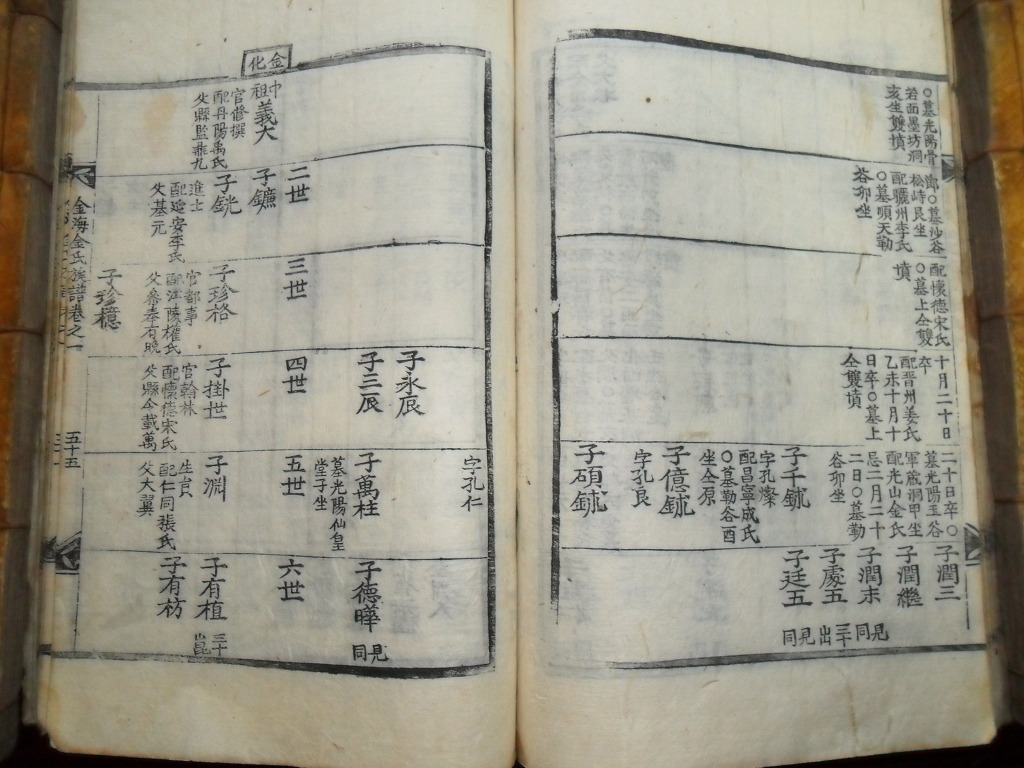 ○墓光陽骨
若面墨坊洞
亥坐雙墳
○墓沙谷
松峙艮坐
配驪州李氏
○墓順天勒
谷卯坐
配懷德宋氏
○墓上仝雙
墳
十月二十日
卒
配晋州姜氏
乙未十月十
日卒○墓上
仝雙墳
二十日卒○
墓光陽玉谷
軍藏洞甲坐
配光山金氏
忌二月二十
二日○墓勒
谷卯坐
子千銶
字孔燦
配昌寧成氏
○墓勒谷酉
坐仝原
子億銶
字孔良
子碩銶
子潤三
子潤繼
子潤末
子處五
子廷五
見同
三十出
見同
金化
中祖
義大
官修撰
配丹陽禹氏
父縣監
二世
子鑣
子銧
進士
配延安李氏
父基元
三世
子珍格
官都事
配江陵權氏
父參奉有晩
子珍檍
子永辰
子三辰
四世
子掛世
官翰林
配懷德宋氏
父縣令載萬
字孔仁
子萬柱
墓光陽仙皇
堂子坐
五世
子淵
生員
配仁同張氏
父大翼
子德曄
見同
六世
子有植
三十
子有枋
金海金氏族譜卷之一
五十五